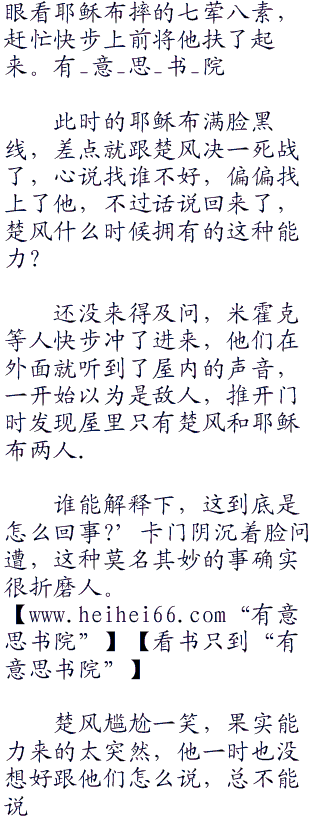 眼看耶稣布摔的七荤八素，
赶忙快步上前将他扶了起
来。有_意_思_书_院
此时的耶稣布满脸黑
线，差点就跟楚风决一死战
了，心说找谁不好，偏偏找
上了他，不过话说回来了，
楚风什么时候拥有的这种能
力？
还没来得及问，米霍克
等人快步冲了进来，他们在
外面就听到了屋内的声音，
一开始以为是敌人，推开门
时发现屋里只有楚风和耶稣
布两人.
谁能解释下，这到底是
怎么回事?’卡门阴沉着脸问
道，这种莫名其妙的事确实
很折磨人。
【www.heihei66.com“有意
思书院”】【看书只到“有
意思书院”】
楚风尴尬一笑，果实能
力来的太突然，他一时也没
想好跟他们怎么说，总不能
说